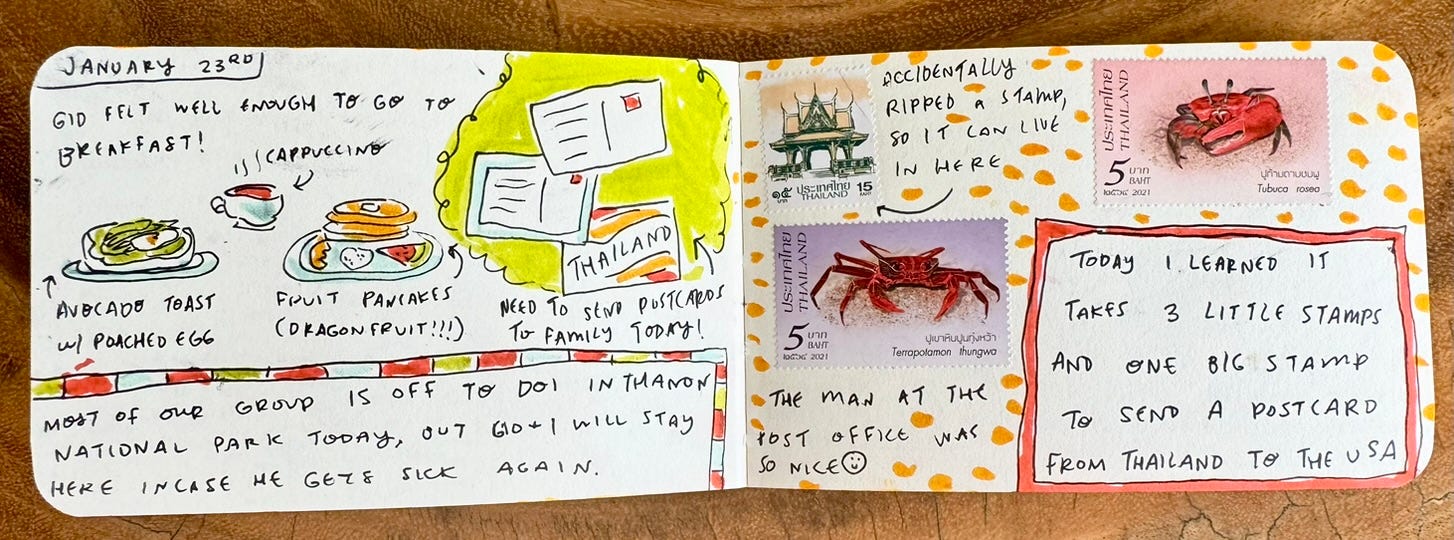 JANUARY 23RD
GID FELT WELL ENOUGH TO GO TO
BREAKFAST!
CAPPUCCINO
AVOCADO TOAST
W/ POACHED EGG
FRUIT PANCAKES
(DRAGONFRUIT!!!)
THAILAND
NEED TO SEND POSTCARDS
TO FAMILY TODAY!
MOST OF OUR GROUP IS OFF TO DOI INTHANON
NATIONAL PARK TODAY, BUT GID + I WILL STAY
HERE INCASE HE GETS SICK AGAIN.
๑๕ ประเทศไทย 15
บาท THAILAND BAHT
ACCIDENTALLY
RIPPED A STAMP,
SO IT CAN LIVE
IN HERE
ประเทศไทย
THAILAND
5 บาท
BAHT
๒๕๖๔ 2021
ปูก้ามดาบชมพู
Tubuca rosea
ประเทศไทย
THAILAND
5 บาท
BAHT
๒๕๖๔ 2021
ปูเขาหินปูนทุ่งหว้า
Terrapotamon thungwa
THE MAN AT THE
POST OFFICE WAS
SO NICE
TODAY I LEARNED IT
TAKES 3 LITTLE STAMPS
AND ONE BIG STAMP
TO SEND A POSTCARD
FROM THAILAND TO THE USA